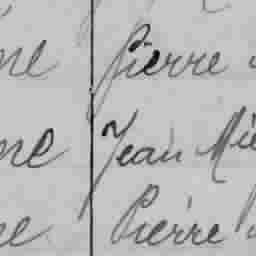 ne Pierre
ne Jean Mi
ne Pierre